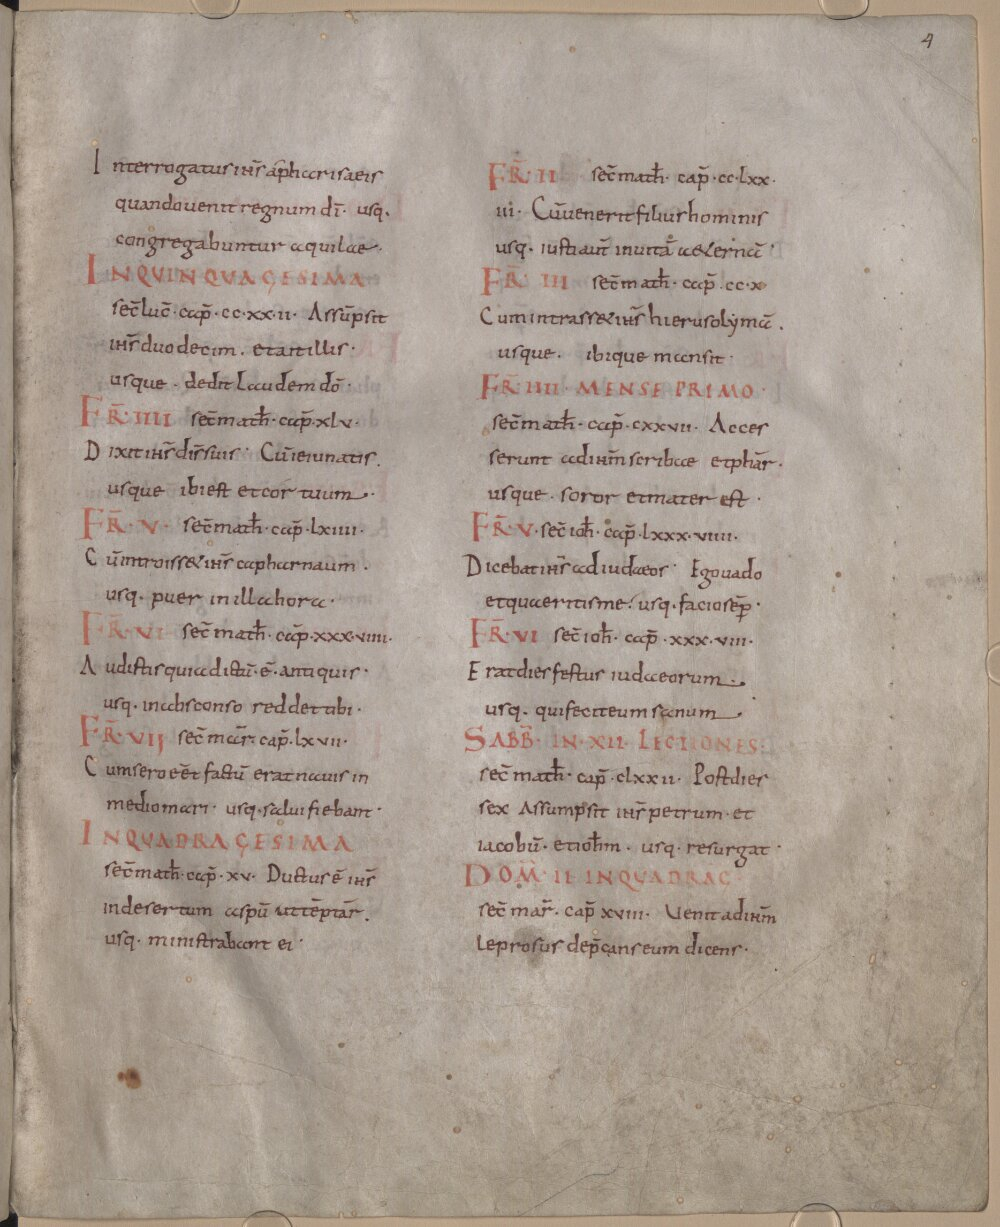 4
Interrogatus ihs̄ apharisaeis
quando uenit regnum dī· usq·
congregabuntur aquilae·
IN QUINQUAGESIMA
sec̄ luc̄· cap̄· cc·xx·ii· Assūpsit
ihs̄ duodecim· et ait illis·
usque· dedit laudem dō·
FR̄· IIII sec̄ math̄· cap̄· xlv·
Dixit ihs̄ dis̄ suis· Cū ieiunatis·
usque ibi est et cor tuum·
FR̄· V· sec̄ math̄· cap̄· lxiiii·
Cū introisset ihs̄ capharnaum·
usq· puer in illa hora·
FR̄· VI· sec̄ math̄· cap̄· xxx·viiii·
Audistis quia dictū· ē· antiquis·
usq· in absconso reddet tibi·
FR̄· VII sec̄ mar̄· cap̄· lxvii·
Cum sero eēt factū erat nauis in
medio mari· usq· salui fiebant·
IN QUADRAGESIMA
sec̄ math̄· cap̄· xv· Ductus ē ihs̄
in desertum aspū ut tēptar̄·
usq· ministrabant ei·
FR̄· II sec̄ math̄· cap̄· cc·lxx·
iii· Cū uenerit filius hominis
usq· iusti aut̄ in uitā aeternā·
FR̄· III sec̄ math̄· cap̄· cc·x·
Cum intrasset ihs̄ hierusolymā·
usque· ibique mansit·
FR̄· IIII· MENSE PRIMO·
sec̄ math̄· cap̄· cxxvii· Acces
serunt ad ihm̄ scribae et phar̄·
usque· soror et mater est·
FR̄· V· sec̄ ioh̄· cap̄· lxxx·viiii·
Dicebat ihs̄ ad iudaeos· Ego uado
et quaeritis me· usq· facio sēp̄·
FR̄· VI sec̄ ioh̄· cap̄· xxx·viii·
Erat dies festus iudaeorum·
usq· qui fecit eum sanum·
SABB̄· IN· XII· LECTIONES·
sec̄ math̄· cap̄· clxxii· Post dies
sex Assumpsit ihs̄ petrum· et
iacobū· et ioh̄m· usq· resurgat·
DOM̄· II IN QUADRAG·
sec̄ mar̄· cap̄ xviii· Uenit ad ihm̄
leprosus dep̄cans eum dicens·